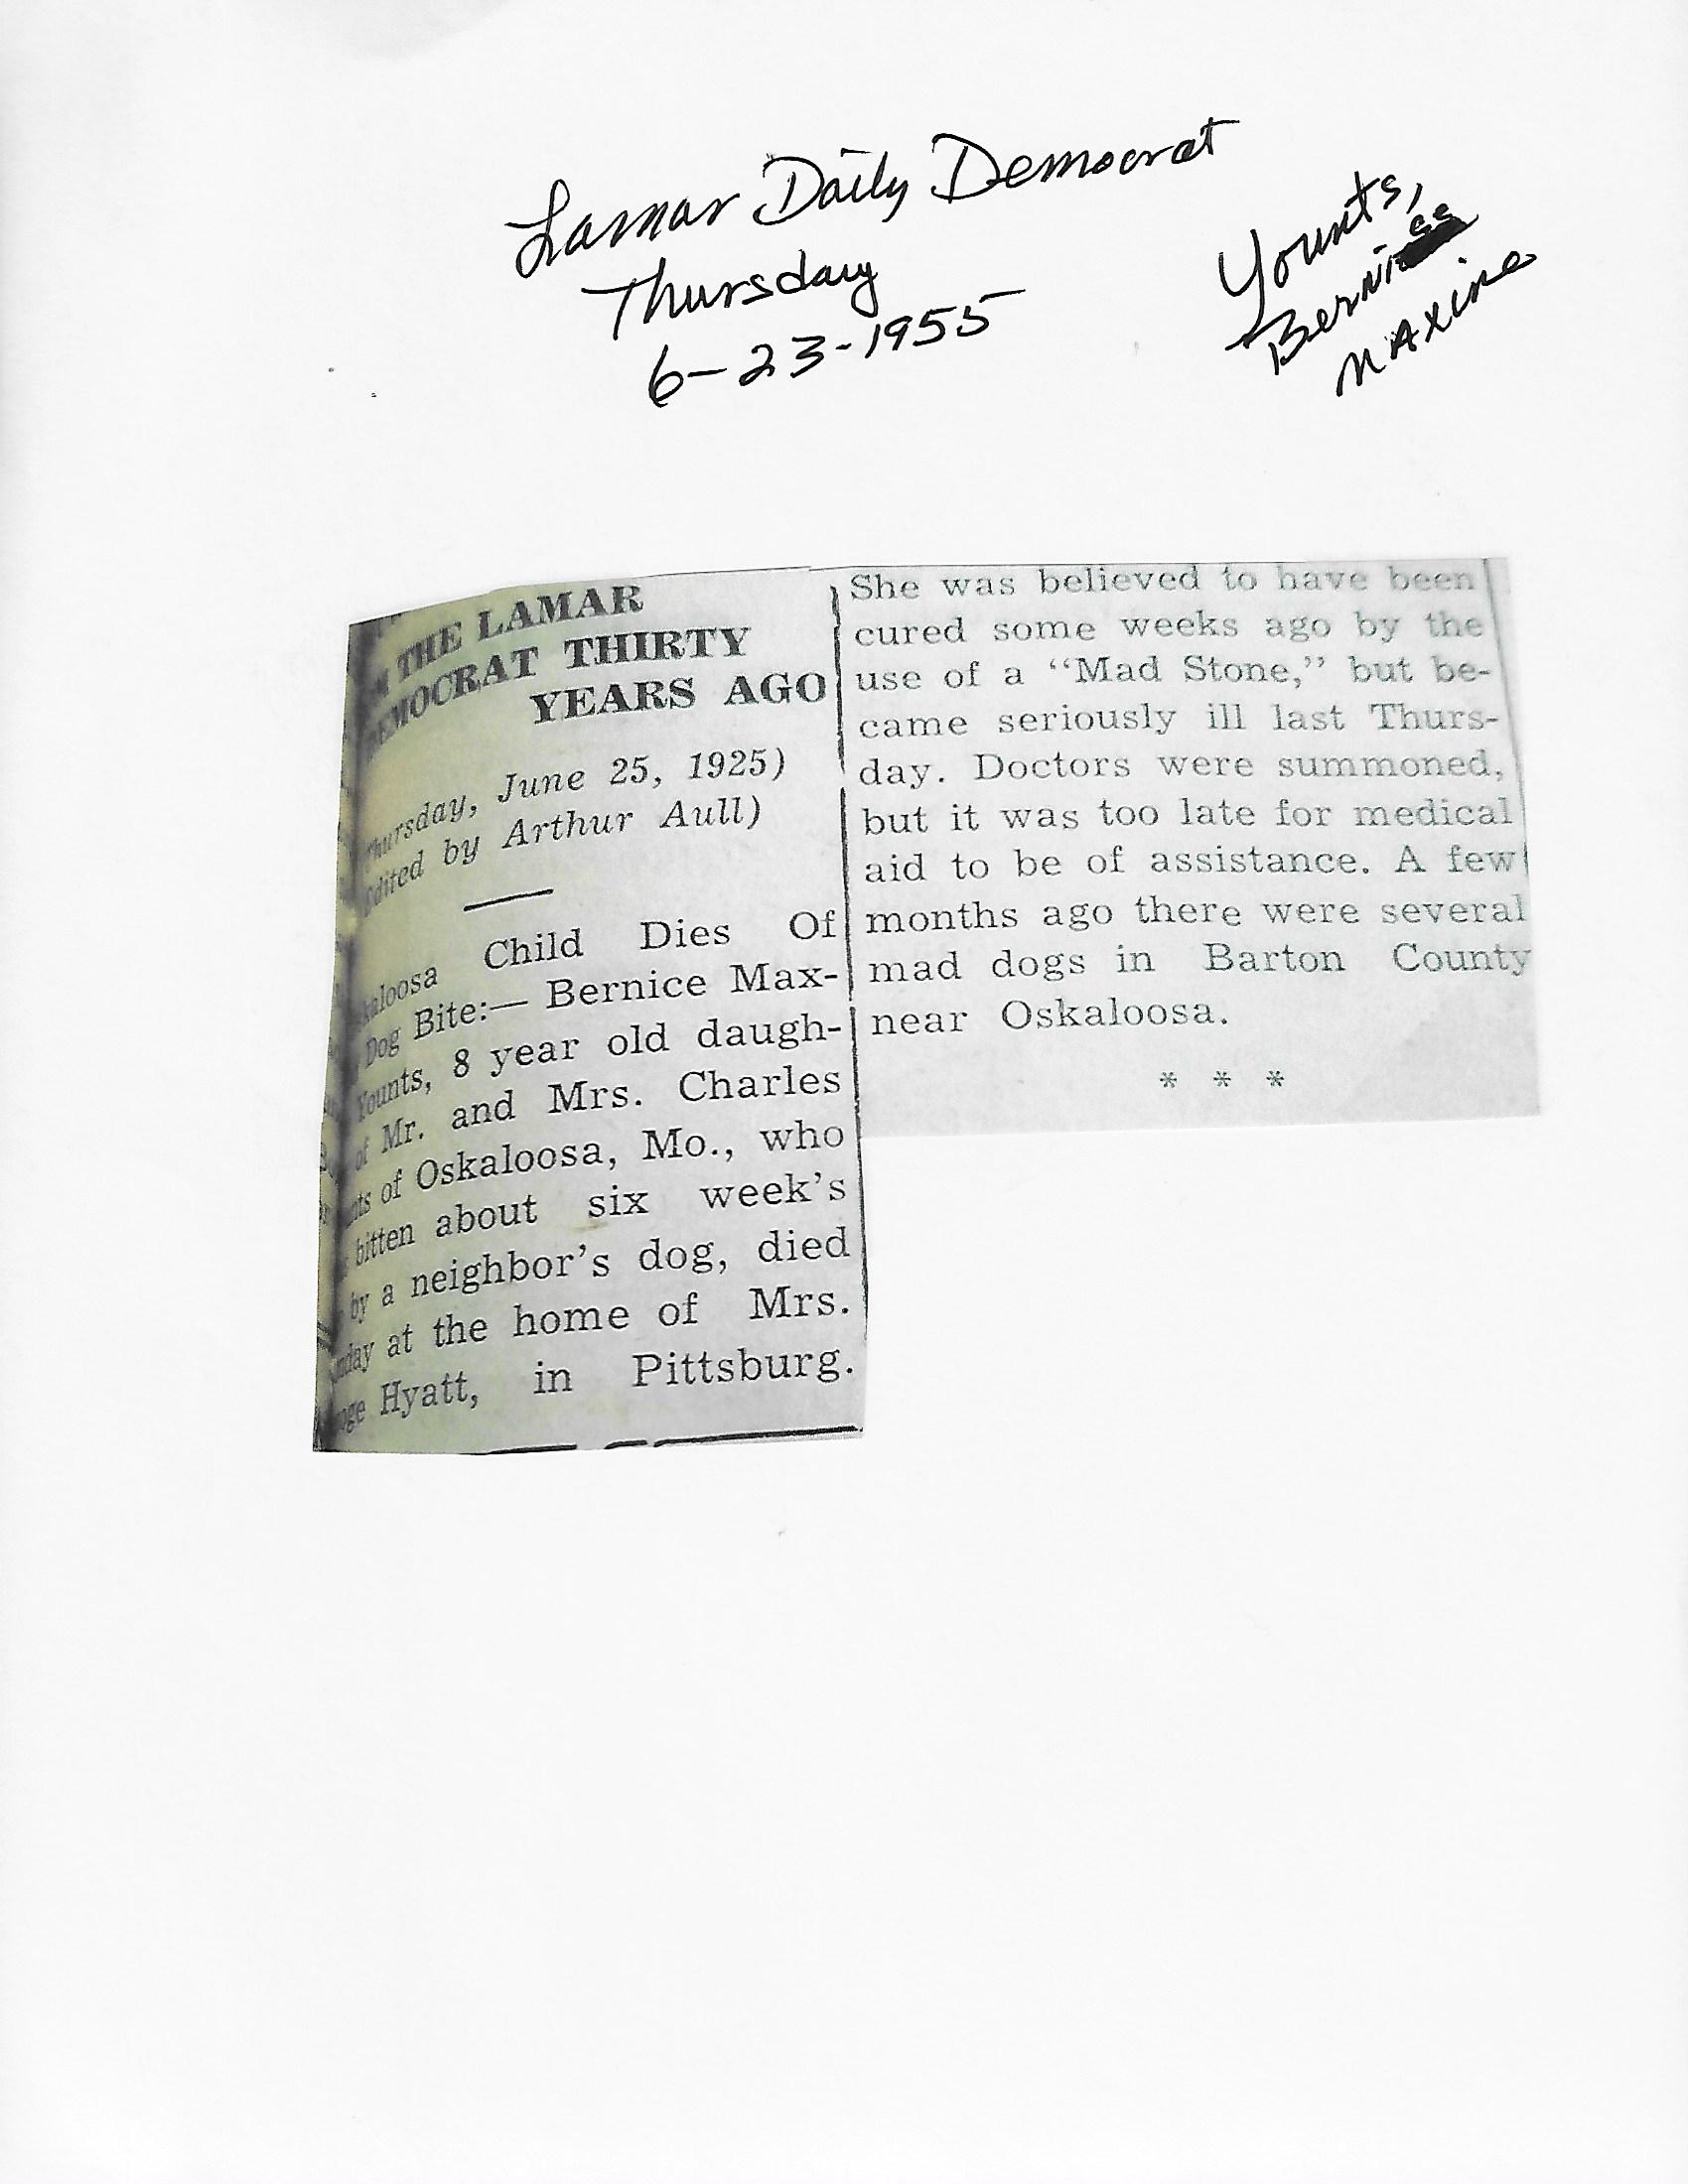 Lamar Daily Democrat
Thursday
6-23-1955
Younts,
Bernice
Maxine
THE LAMAR
DEMOCRAT THIRTY
YEARS AGO
Thursday, June 25, 1925)
Edited by Arthur Aull)
kaloosa Child Dies Of
Dog Bite:— Bernice Max-
Younts, 8 year old daugh-
of Mr. and Mrs. Charles
nts of Oskaloosa, Mo., who
bitten about six week's
by a neighbor's dog, died
nday at the home of Mrs.
Hyatt, in Pittsburg.
She was believed to have been
cured some weeks ago by the
use of a “Mad Stone,” but be-
came seriously ill last Thurs-
day. Doctors were summoned,
but it was too late for medical
aid to be of assistance. A few
months ago there were several
mad dogs in Barton County
near Oskaloosa.
* * *